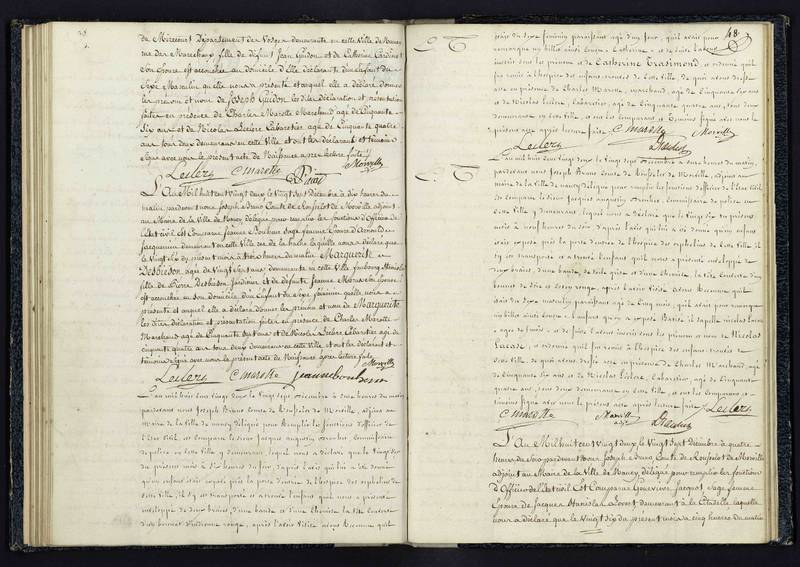 de Mirecourt Département des Vosges demeurante en cette Ville de Nancy
rue des Maréchaux fille de défunt Jean Guidon et de Catherine Cardinet
Son Epouse est accouchée au domicile d'elle déclarante d'un Enfant du
Sexe Masculin qu'elle nous a présenté et auquel elle a déclaré donner
les prénom et nom de Joseph Guidon les dites déclaration et présentation
faites en présence de Charles Marotte Marchand agé de Cinquante
Six ans et de Nicolas Leclere Cabaretier agé de Cinquante quatre
ans tous deux demeurans en cette Ville et ont les déclarant et témoins
signé avec nous le présent acte de Naissance après lecture faite
Leclerc C marotte Morville
L'An Mil huit cent vingt deux, le vingt sept Décembre à dix heures du
matin, pardevant nous Joseph Bruno Comte de Rousselot de Morville adjoint
au Maire de la Ville de Nancy délégué pour remplir les fonctions d'Officier de
l'Etat civil Est Comparue Jeanne Bouchon Sage femme Epouse d'Arnould
Jacquemin demeurant en cette Ville rue de la hache laquelle nous a déclaré que
le Vingt six du présent mois à trois heures du matin Marguerite
Desbisson, agée de Vingt sept ans demeurante en cette Ville faubourg Stanislas
fille de Pierre Desbisson Jardinier et de défunte Jeanne son Epouse
est accouchée en son domicile d'un Enfant du Sexe féminin qu'elle nous a
présenté et auquel elle a déclaré donner les prénom et nom de Marguerite
les dites déclaration et présentation faites en présence de Charles Marotte
Marchand agé de Cinquante Six ans et de Nicolas Leclere Cabaretier agé de
Cinquante quatre ans tous deux demeurans en cette Ville et ont les déclarant et
témoins signé avec nous le présent acte de Naissance après lecture faite
Morville
Leclerc C marotte jeanne bouchonn
L'an mil huit cent vingt deux le vingt sept décembre à onze heures du matin
pardevant nous Joseph Bruno Comte de Rousselot de Morville, adjoint au
maire de la ville de nancy délégué pour remplir les fonctions d'officier de
l'Etat Civil est comparu le sieur Jacques augustin Commissaire
de police en cette ville y demeurant, lequel nous a déclaré que le vingt six
du présent mois à heures du soir, d'après l'avis qui lui a été donné
qu'un enfant était exposé près la porte d'entrée de l'hospice des orphelins de
cette ville, il s'y est transporté et a trouvé l'enfant qu'il nous a présenté
enveloppé de deux draps, d'une bande et d'une Chemise la tête couverte
d'un bonnet d'indienne rouge, après l'avoir visité avons reconnu qu'il
48
était du Sexe féminin paraissant agé d'un jour, qu'il avait pour
remarque un billet ainsi conçu : Catherine et de suite l'avons
inscrit sous les prénom et nom de Catherine Trasimond et ordonné qu'il
fut remis à l'hospice des enfans trouvés de cette Ville, de quoi avons dressé
acte en présence de Charles Marotte, marchand, agé de Cinquante Six ans
et de Nicolas Leclere, Cabaretier, agé de Cinquante quatre ans, tous deux
demeurans en cette Ville, et ont les comparant et témoins signé avec nous le
présent acte après lecture faite C marotte Morville
Leclerc
L'an mil huit cent vingt deux le vingt sept décembre à onze heures du matin
pardevant nous Joseph Bruno Comte de Rousselot de Morville, adjoint au
maire de la ville de nancy délégué pour remplir les fonctions d'officier de l'Etat Civil
est comparu le sieur Jacques augustin Commissaire de police en
cette Ville y demeurant, lequel nous a déclaré que le vingt six du présent
mois à neuf heures du soir d'après l'avis qui lui a été donné qu'un enfant
était exposé près la porte d'entrée de l'hospice des orphelins de cette Ville il
s'y est transporté et a trouvé l'enfant qu'il nous a présenté enveloppé de
deux draps, d'une bande et d'une Chemise, la tête couverte d'un
bonnet rouge, après l'avoir visité avons reconnu qu'il
était du Sexe masculin paraissant agé de Cinq mois, qu'il avait pour remarque
un billet ainsi conçu : L'enfant qu'on a exposé Baptisé il s'appelle nicolas
et de suite l'avons inscrit sous les prénom et nom de Nicolas
et ordonné qu'il fut remis à l'hospice des enfans trouvés de
cette Ville de quoi avons dressé acte en présence de Charles Marotte, marchand, agé
de Cinquante Six ans et de Nicolas Leclere, Cabaretier, agé de Cinquante
quatre ans, tous deux demeurans en cette Ville, et ont les comparant et
témoins signé avec nous le présent acte après lecture faite Leclerc
C marotte Morville
L'An Mil huit cent vingt deux le vingt sept Décembre à quatre
heures du Soir pardevant Nous Joseph Bruno Comte de Rousselot de Morville
adjoint au Maire de la Ville de Nancy délégué pour remplir les fonctions
d'Officier de l'Etat civil Est Comparue Geneviève Jacquot Sage femme
Epouse de Jacques Stanislas demeurant à la Citadelle laquelle
nous a déclaré que le Vingt Six du présent mois à cinq heures du matin